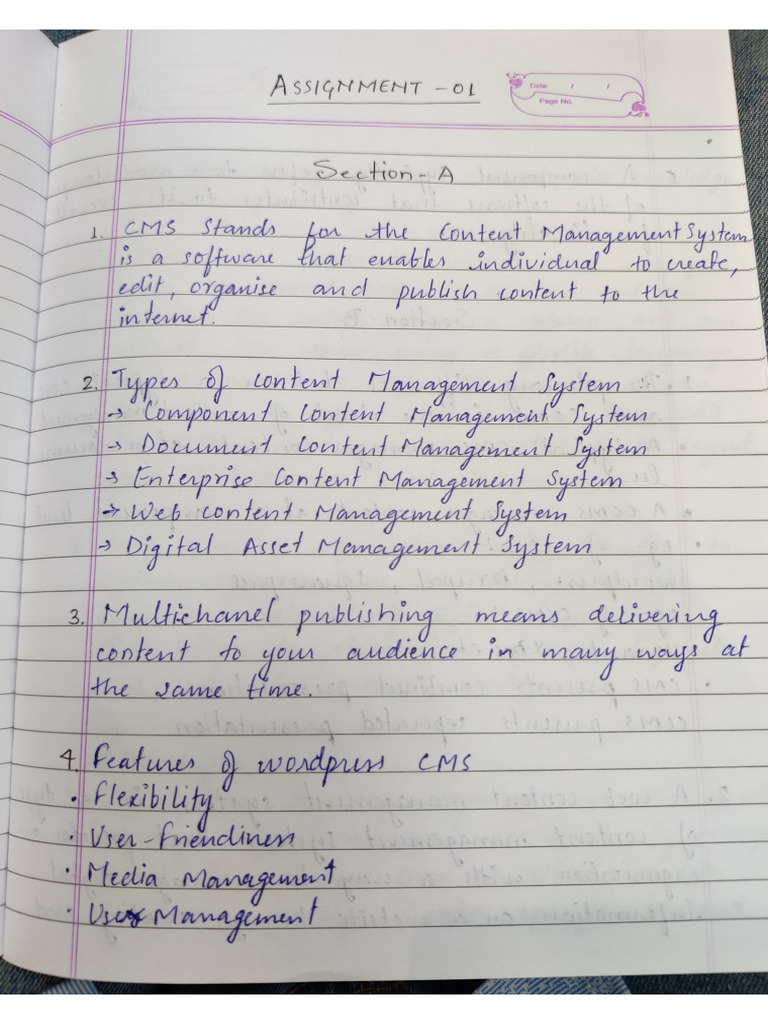 ASSIGNMENT - 01
Date / /
Page No.
Section - A
1. CMS stands for the Content Management System
is a software that enables individual to create,
edit, organise and publish content to the
internet.
2. Types of content Management System :
→ Component Content Management System
→ Document Content Management System
→ Enterprise Content Management System
→ Web content Management System
→ Digital Asset Management System
3. Multichanel publishing means delivering
content to your audience in many ways at
the same time.
4. Features of wordpress CMS
• Flexibility
• User-friendliness
• Media Management
• User Management